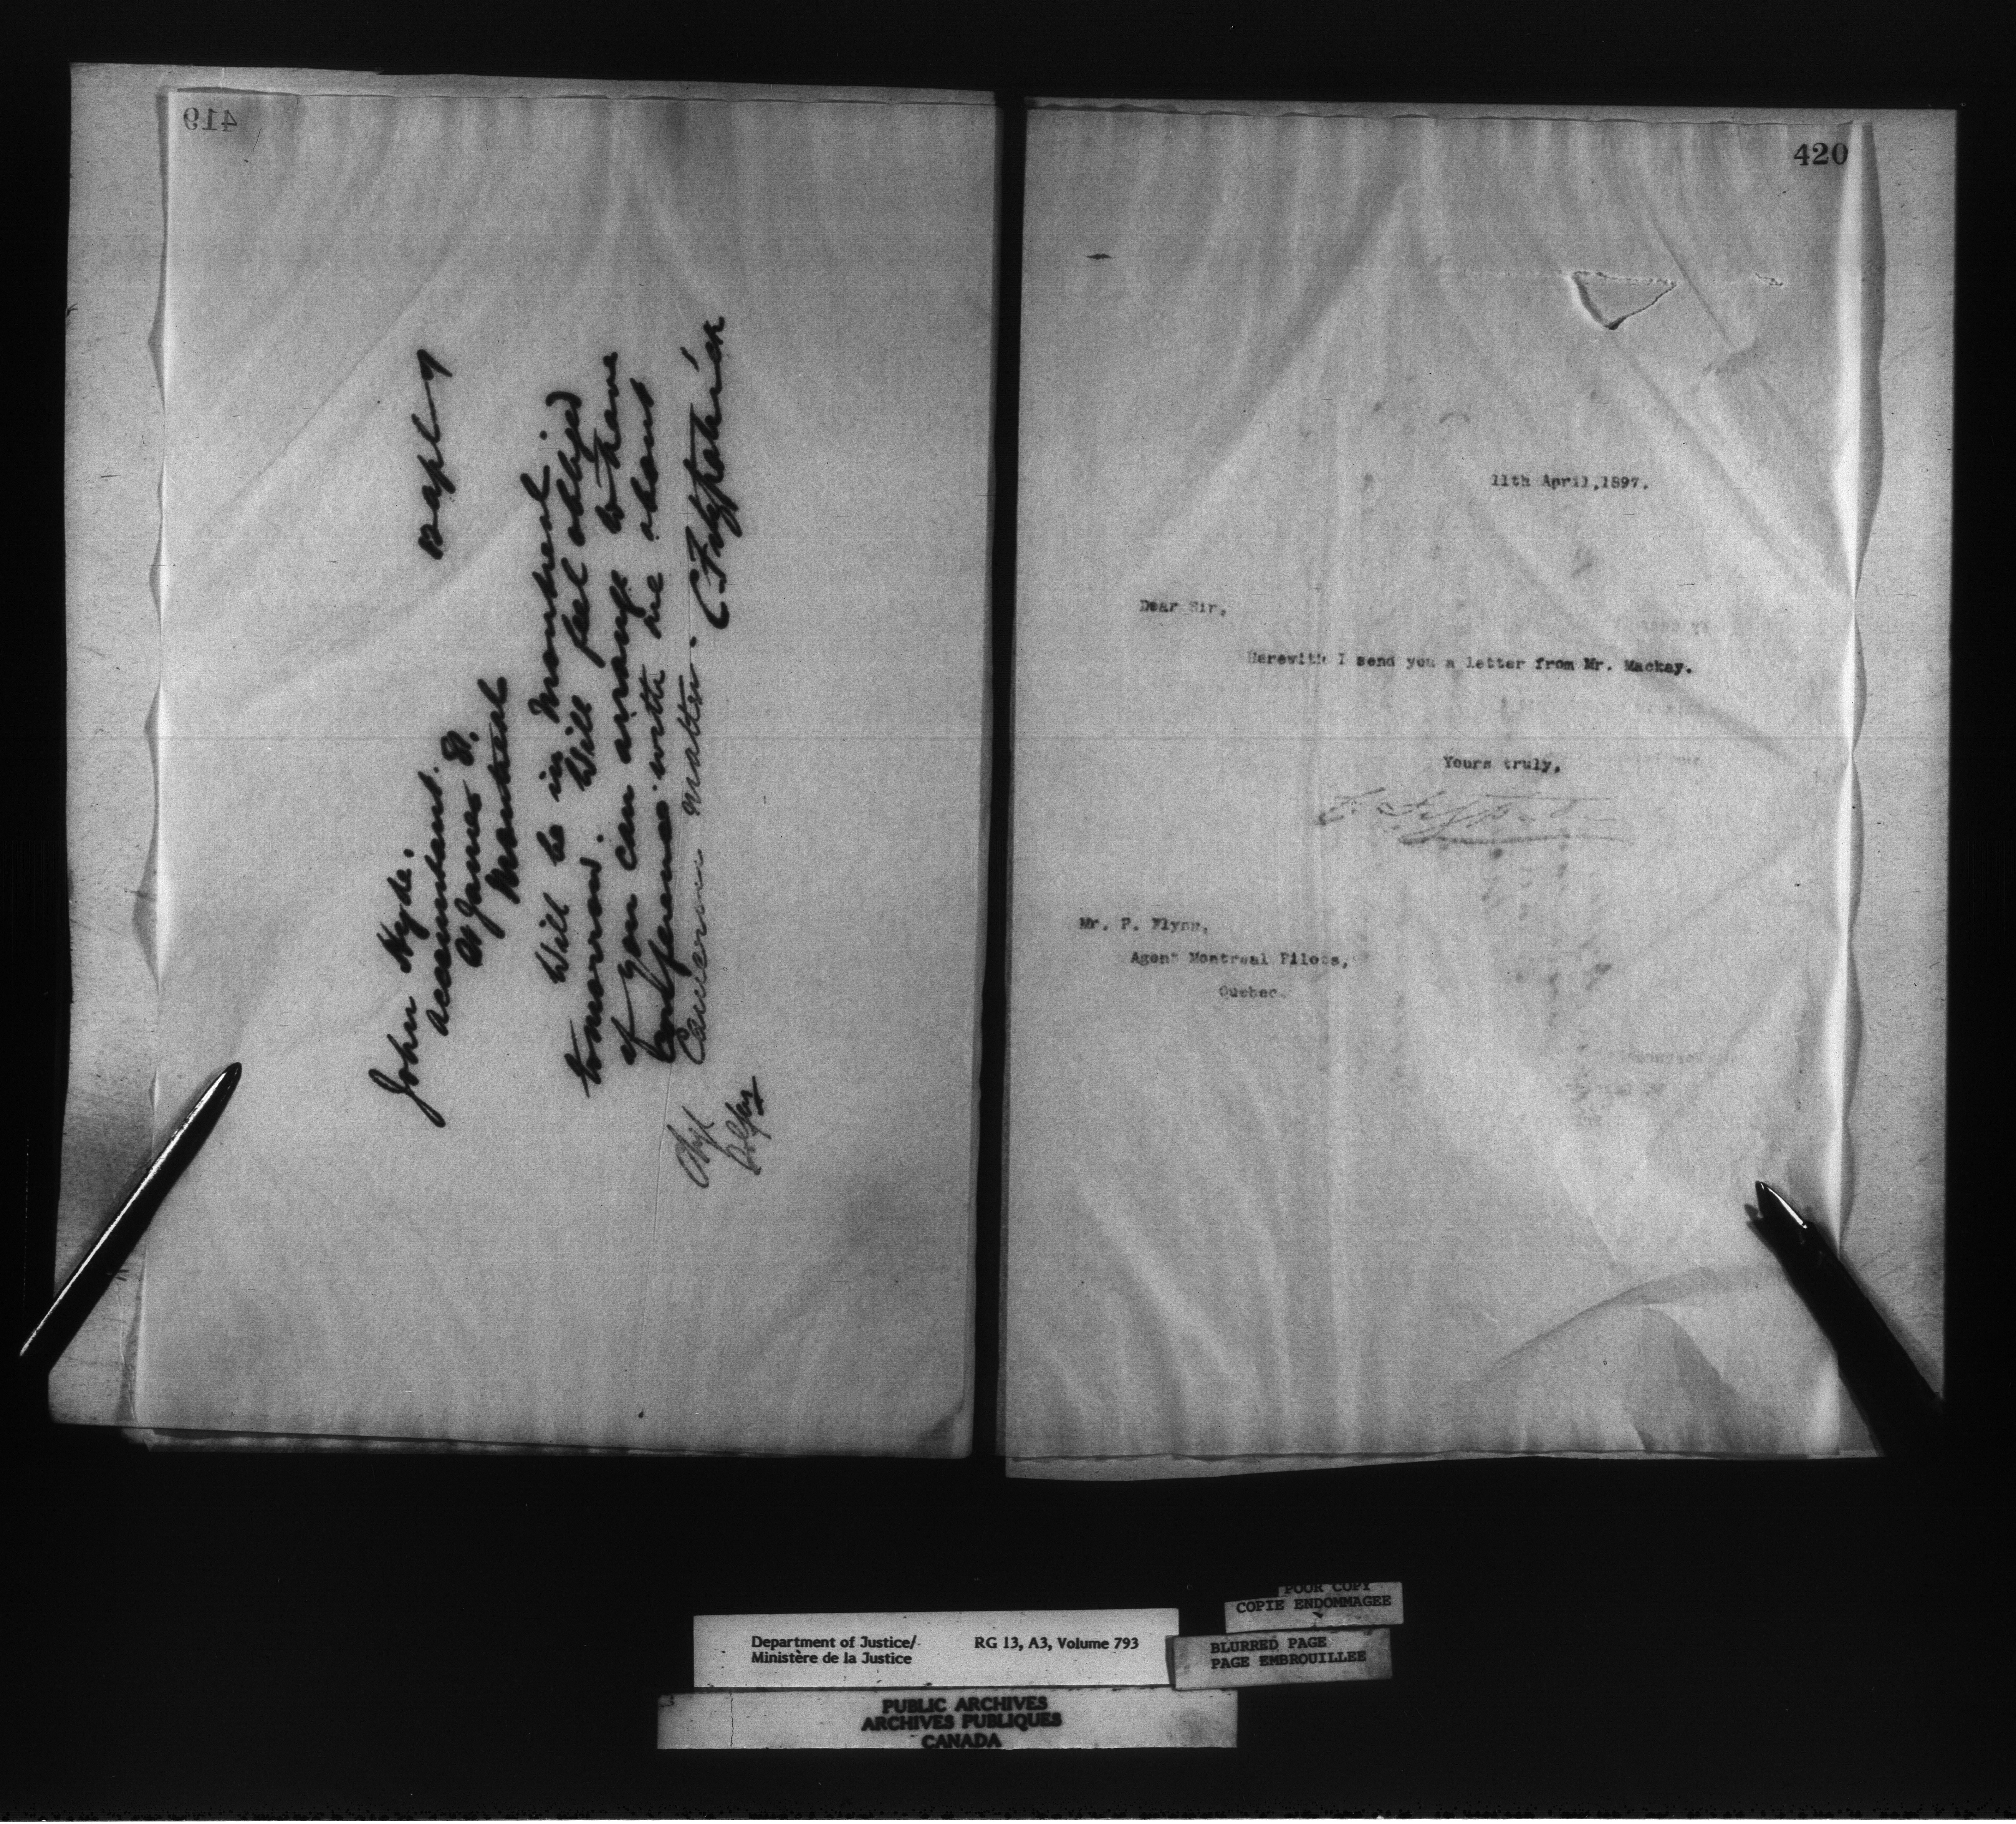 419
John Hyde.
Accountant.
St James St.
Montreal
Will be in Montreal.
tomorrow. Will feel obliged
if you can arrange to have
conference with me about
Cameron matter.
C Fitzpatrick
420
11th April,1897.
Dear Sir,
Herewith I send you a letter from Mr. Mackay.
Yours truly,
C. Fitzpatrick
Mr. P. Flynn,
Agent Montreal Pilots,
Quebec.
POOR COPY
COPIE ENDOMMAGEE
Department of Justice/ RG 13, A3, Volume 793
Ministère de la Justice
BLURRED PAGE
PAGE EMBROUILLEE
PUBLIC ARCHIVES
ARCHIVES PUBLIQUES
CANADA